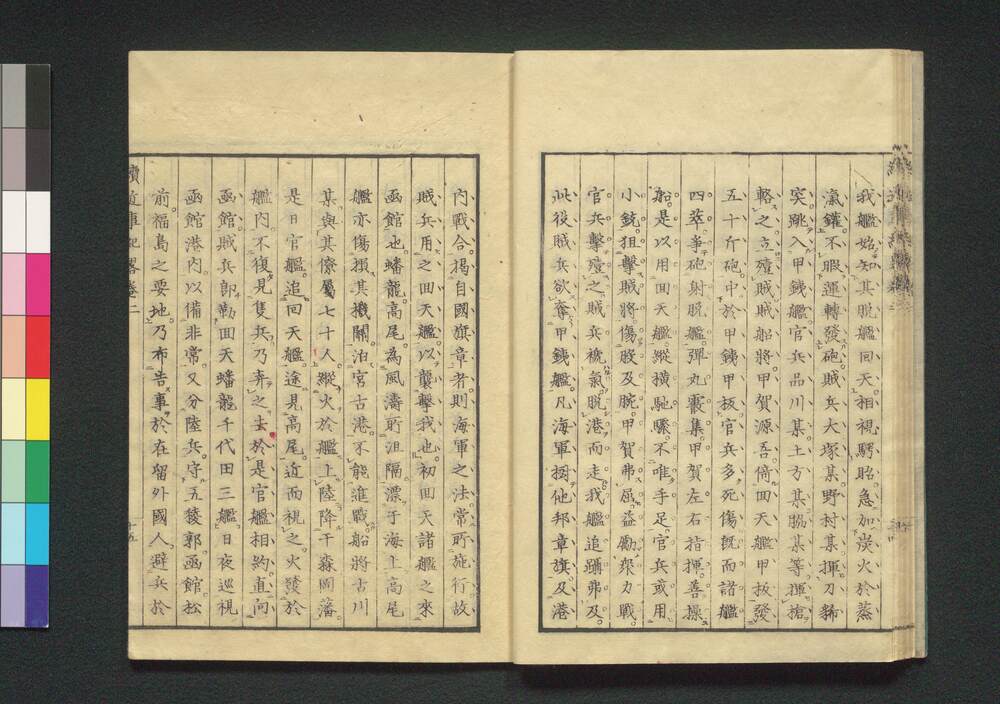 我艦始知其脱艦回天相視騁眙急加炭火於蒸
瀛鑵不暇運轉發砲賊兵大塚某野村某揮刀
突跳入甲鉄艦官兵品川某土方某脇某等揮槍
輅之立殪賊賊船將甲賀源吾倚回天艦甲板發
五十斤砲中於甲鉄甲板官兵多死傷既而諸艦
四萃爭砲射脱艦彈丸霰集甲賀左右指揮善操
船是以用回天艦縱横馳驟不唯手足官兵或用
小銃狙擊賊將傷股及腕甲賀弗屈益勵衆力戰
官兵擊殪之賊兵褫氣脱港而走我艦追躡弗及
此役賊兵欲奪甲鉄艦凡海軍掲他邦章旗及港
内戰合揭自國旗章者則海軍之法常所施行故
賊兵用之回天艦以襲擊我也初回天諸艦之來
函館也蟠龍高尾為風濤所沮隔漂于海上高尾
艦亦傷損其機關泊宮古港不能進戰船將古川
某與其僚屬七十人縱火於艦上陸降于盛岡藩
是日官艦追回天艦途見高尾近而視之火發於
艦内不復見隻兵乃弃之去於是官艦相約直向
函館賊兵即勒回天蟠龍千代田三艦日夜巡視
函館港内以備非常又分陸兵守五稜郭函館松
前福島之要地乃布告事於在留外國人避兵於
卷二
十五